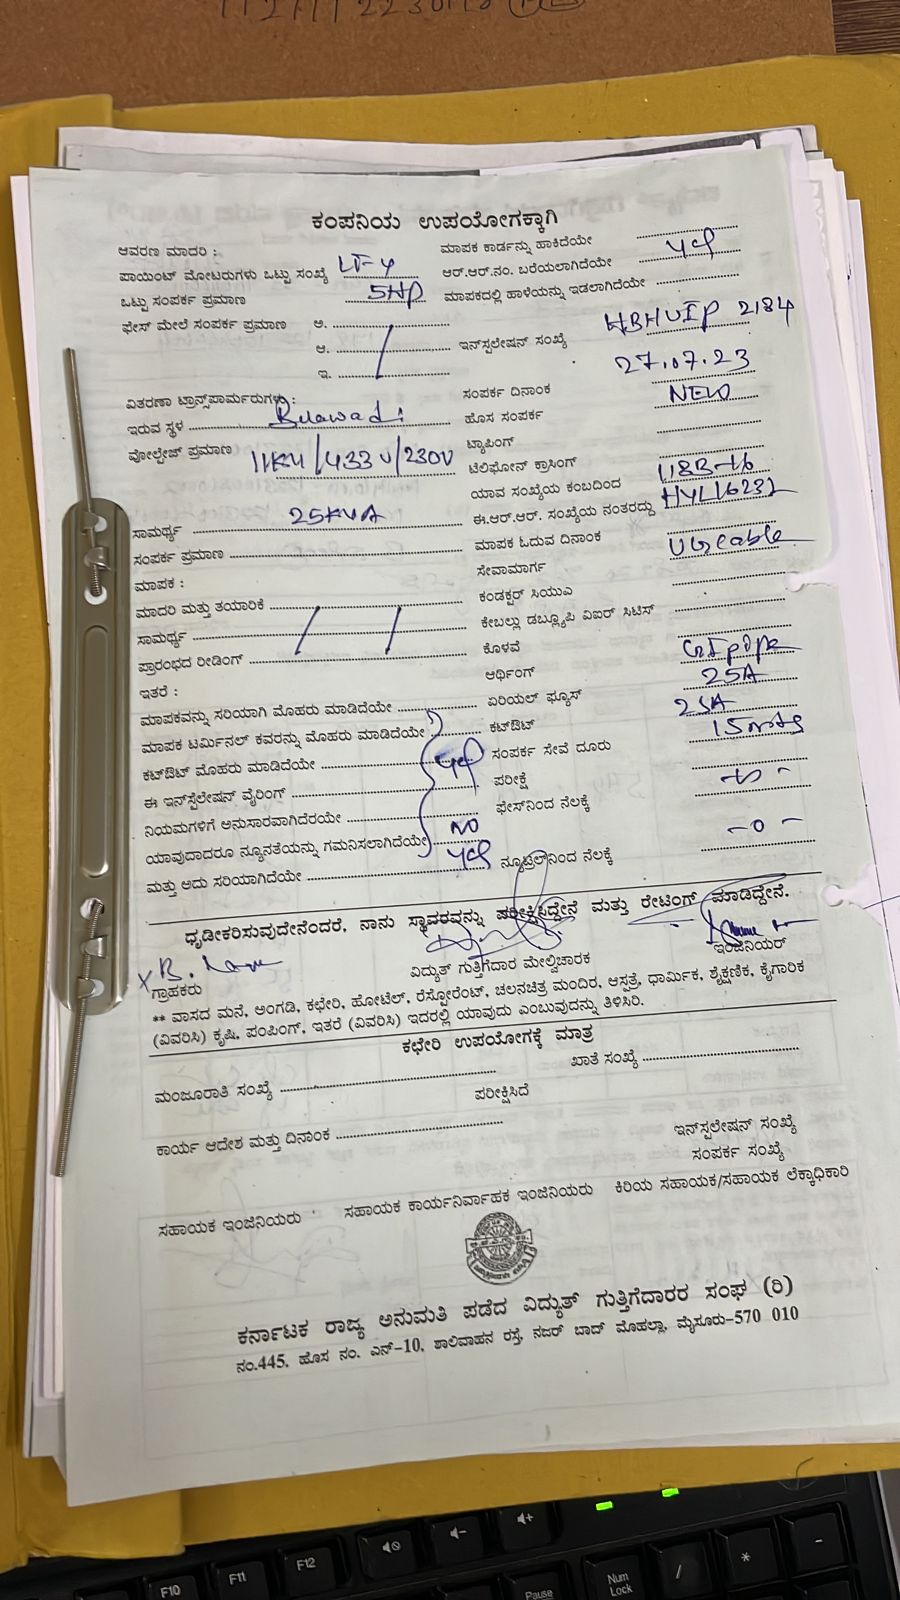 ಕಂಪನಿಯ ಉಪಯೋಗಕ್ಕಾಗಿ
ಆವರಣ ಮಾದರಿ :
ಪಾಯಿಂಟ್ ಮೋಟರುಗಳು ಒಟ್ಟು ಸಂಖ್ಯೆ LT-4
ಒಟ್ಟು ಸಂಪರ್ಕ ಪ್ರಮಾಣ 5HP
ಫೇಸ್ ಮೇಲೆ ಸಂಪರ್ಕ ಪ್ರಮಾಣ ಅ.
ಆ.
ಇ.
ವಿತರಣಾ ಟ್ರಾನ್ಸ್‌ಪಾರ್ಮರುಗಳು :
ಇರುವ ಸ್ಥಳ
ವೋಲ್ಟೇಜ್ ಪ್ರಮಾಣ 11KV/433V/230V
ಸಾಮರ್ಥ್ಯ 25KVA
ಸಂಪರ್ಕ ಪ್ರಮಾಣ
ಮಾಪಕ :
ಮಾದರಿ ಮತ್ತು ತಯಾರಿಕೆ
ಸಾಮರ್ಥ್ಯ
ಪ್ರಾರಂಭದ ರೀಡಿಂಗ್
ಇತರೆ :
ಮಾಪಕವನ್ನು ಸರಿಯಾಗಿ ಮೊಹರು ಮಾಡಿದೆಯೇ
ಮಾಪಕ ಟರ್ಮಿನಲ್ ಕವರನ್ನು ಮೊಹರು ಮಾಡಿದೆಯೇ
ಕಟ್‌ಔಟ್ ಮೊಹರು ಮಾಡಿದೆಯೇ
ಈ ಇನ್‌ಸ್ಪೆಲೇಷನ್ ವೈರಿಂಗ್
ನಿಯಮಗಳಿಗೆ ಅನುಸಾರವಾಗಿದೆರಯೇ
ಯಾವುದಾದರೂ ನ್ಯೂನತೆಯನ್ನು ಗಮನಿಸಲಾಗಿದೆಯೇ NO
ಮತ್ತು ಅದು ಸರಿಯಾಗಿದೆಯೇ
ಮಾಪಕ ಕಾರ್ಡನ್ನು ಹಾಕಿದೆಯೇ
ಆರ್.ಆರ್.ನಂ. ಬರೆಯಲಾಗಿದೆಯೇ
ಮಾಪಕದಲ್ಲಿ ಹಾಳೆಯನ್ನು ಇಡಲಾಗಿದೆಯೇ
ಇನ್‌ಸ್ಪಲೇಷನ್ ಸಂಖ್ಯೆ HBHUIP 2184
ಸಂಪರ್ಕ ದಿನಾಂಕ 27.07.23
ಹೊಸ ಸಂಪರ್ಕ NEW
ಟ್ಯಾಪಿಂಗ್
ಟೆಲಿಫೋನ್ ಕ್ರಾಸಿಂಗ್
ಯಾವ ಸಂಖ್ಯೆಯ ಕಂಬದಿಂದ
ಈ.ಆರ್.ಆರ್. ಸಂಖ್ಯೆಯ ನಂತರದ್ದು
ಮಾಪಕ ಓದುವ ದಿನಾಂಕ
ಸೇವಾಮಾರ್ಗ UG cable
ಕಂಡಕ್ಟರ್ ಸಿಯುವಿ
ಕೇಬಲ್ಲು ಡಬ್ಲ್ಯೂಪಿ ವಿಐರ್ ಸಿಟಿಸ್
ಕೊಳವೆ
ಆರ್ಥಿಂಗ್ GI pipe
ಏರಿಯಲ್ ಫ್ಯೂಸ್ 25A
ಕಟ್‌ಔಟ್ 25A
ಸಂಪರ್ಕ ಸೇವೆ ದೂರು 15mts
ಪರೀಕ್ಷೆ
ಫೇಸ್‌ನಿಂದ ನೆಲಕ್ಕೆ
ನ್ಯೂಟ್ರಲ್‌ನಿಂದ ನೆಲಕ್ಕೆ -0-
ಧೃಡೀಕರಿಸುವುದೇನೆಂದರೆ, ನಾನು ಸ್ಥಾವರವನ್ನು ಪರೀಕ್ಷಿಸಿದ್ದೇನೆ ಮತ್ತು ರೇಟಿಂಗ್ ಮಾಡಿದ್ದೇನೆ.
ಗ್ರಾಹಕರು
ವಿದ್ಯುತ್ ಗುತ್ತಿಗೆದಾರ ಮೇಲ್ವಿಚಾರಕ
ಇಂಜಿನಿಯರ್
** ವಾಸದ ಮನೆ, ಅಂಗಡಿ, ಕಛೇರಿ, ಹೋಟೆಲ್, ರೆಸ್ಟೋರೆಂಟ್, ಚಲನಚಿತ್ರ ಮಂದಿರ, ಆಸ್ಪತ್ರೆ, ಧಾರ್ಮಿಕ, ಶೈಕ್ಷಣಿಕ, ಕೈಗಾರಿಕ
(ವಿವರಿಸಿ) ಕೃಷಿ, ಪಂಪಿಂಗ್, ಇತರೆ (ವಿವರಿಸಿ) ಇದರಲ್ಲಿ ಯಾವುದು ಎಂಬುವುದನ್ನು ತಿಳಿಸಿರಿ.
ಕಛೇರಿ ಉಪಯೋಗಕ್ಕೆ ಮಾತ್ರ
ಮಂಜೂರಾತಿ ಸಂಖ್ಯೆ
ಖಾತೆ ಸಂಖ್ಯೆ
ಪರೀಕ್ಷಿಸಿದೆ
ಕಾರ್ಯ ಆದೇಶ ಮತ್ತು ದಿನಾಂಕ
ಇನ್‌ಸ್ಪಲೇಷನ್ ಸಂಖ್ಯೆ
ಸಂಪರ್ಕ ಸಂಖ್ಯೆ
ಸಹಾಯಕ ಇಂಜಿನಿಯರು
ಸಹಾಯಕ ಕಾರ್ಯನಿರ್ವಾಹಕ ಇಂಜಿನಿಯರು
ಕಿರಿಯ ಸಹಾಯಕ/ಸಹಾಯಕ ಲೆಕ್ಕಾಧಿಕಾರಿ
ಕರ್ನಾಟಕ ರಾಜ್ಯ ಅನುಮತಿ ಪಡೆದ ವಿದ್ಯುತ್ ಗುತ್ತಿಗೆದಾರರ ಸಂಘ (ರಿ)
ನಂ.445, ಹೊಸ ನಂ. ಎನ್-10, ಶಾಲಿವಾಹನ ರಸ್ತೆ, ನಜರ್ ಬಾದ್ ಮೊಹಲ್ಲಾ, ಮೈಸೂರು-570 010
F10
F11
F12
Pause
Num
Lock
/
*
-